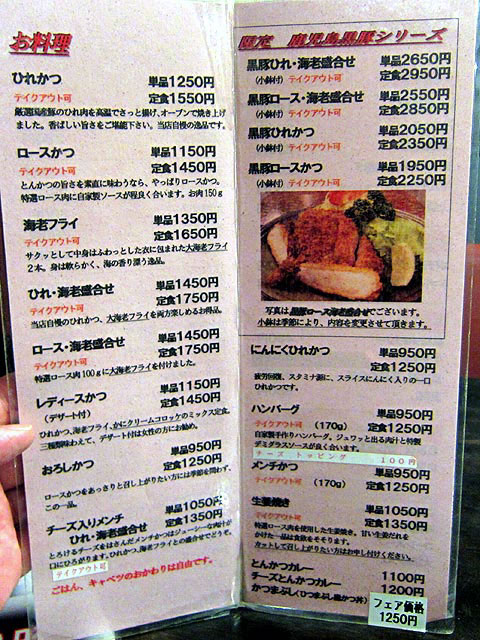 お料理
ひれかつ 単品1250円
テイクアウト可 定食1550円
厳選国産豚のひれ肉を高温でさっと揚げ、オーブンで焼き上げ
ました。香ばしい旨さをご堪能下さい。当店自慢の逸品です。
ロースかつ 単品1150円
テイクアウト可 定食1450円
とんかつの旨さを素直に味わうなら、やっぱりロースかつ。
特選ロース肉に自家製ソースが程良く合います。お肉150g
海老フライ 単品1350円
テイクアウト可 定食1650円
サクッとして中身はふわっとした衣に包まれた大海老フライ
2本。身は軟らかく、海の香り漂う逸品。
ひれ・海老盛合せ 単品1450円
テイクアウト可 定食1750円
当店自慢のひれかつ、大海老フライを両方楽しめるお得品。
ロース・海老盛合せ 単品1450円
テイクアウト可 定食1750円
特選ロース肉100gに大海老フライを付けました。
レディースかつ 単品1150円
(デザート付) 定食1450円
ひれかつ、海老フライ、かにクリームコロッケのミックス定食。
三種類味わえて、デザート付は女性の方にお勧め。
おろしかつ 単品950円
定食1250円
ロースかつをあっさりと召し上がりたい方には季節を問わず、
この一品。
チーズ入りメンチ 単品1050円
ひれ・海老盛合せ 定食1350円
とろけるチーズをはさんだメンチかつはジューシーな肉汁が
口にひろがります。ひれかつ、海老フライとの盛合せでどうぞ。
テイクアウト可
ごはん、キャベツのおかわりは自由です。
限定 鹿児島黒豚シリーズ
黒豚ひれ・海老盛合せ 単品2650円
(小鉢付) テイクアウト可 定食2950円
黒豚ロース・海老盛合せ 単品2550円
(小鉢付) テイクアウト可 定食2850円
黒豚ひれかつ 単品2050円
(小鉢付) テイクアウト可 定食2350円
黒豚ロースかつ 単品1950円
(小鉢付) テイクアウト可 定食2250円
写真は黒豚ロース海老盛合せでございます。
小鉢は季節により、内容を変更させて頂きます。
にんにくひれかつ 単品950円
定食1250円
疲労回復、スタミナ源に、スライスにんにく入りの一口
ひれかつです。
ハンバーグ 単品950円
テイクアウト可 (170g) 定食1250円
自家製手作りハンバーグ。ジュワッと出る肉汁と特製
デミグラスソースが良く合います。
チーズ トッピング 100円
メンチかつ 単品950円
テイクアウト可 (170g) 定食1250円
生姜焼き 単品1050円
テイクアウト可 定食1350円
特選ロース肉を使用した生姜焼き。甘い生姜だれを
かけた一品は食欲をそそります。
カットして召し上がりたい方はお申し付けください。
とんかつカレー 1100円
チーズとんかつカレー 1200円
かつまぶし(ひつまぶし風かつ丼)
フェア価格
1250円